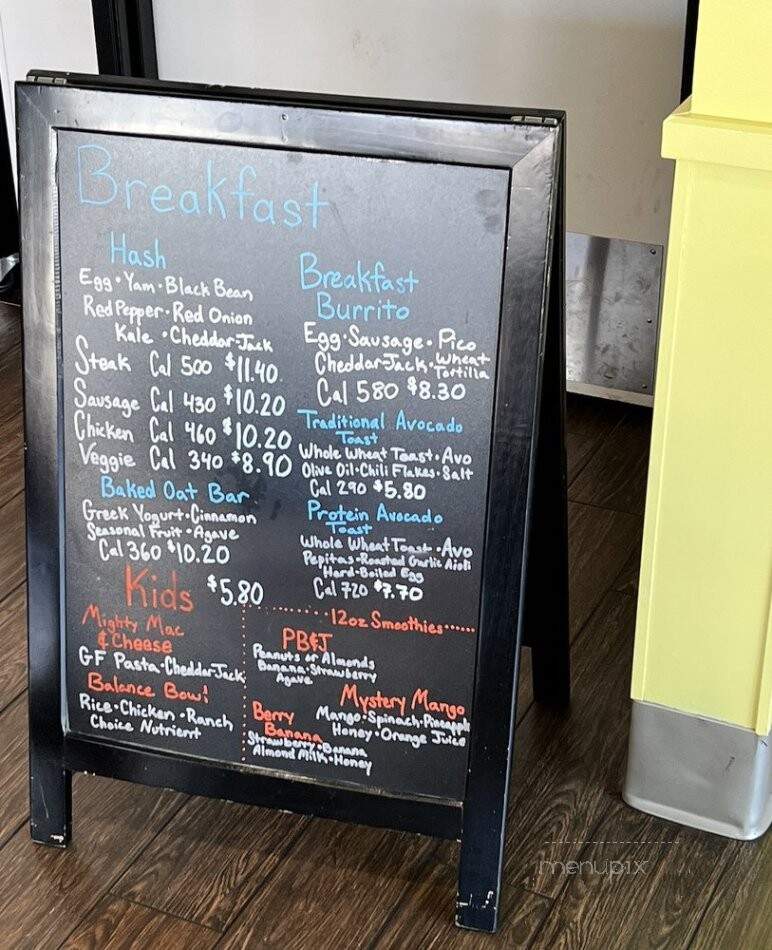 Breakfast
Hash
Egg · Yam · Black Bean
Red Pepper · Red Onion
Kale · Cheddar-Jack
Steak Cal 500 $11.40
Sausage Cal 430 $10.20
Chicken Cal 460 $10.20
Veggie Cal 340 $8.90
Baked Oat Bar
Greek Yogurt · Cinnamon
Seasonal Fruit · Agave
Cal 360 $10.20
Breakfast
Burrito
Egg · Sausage · Pico
Cheddar-Jack · Wheat
Tortilla
Cal 580 $8.30
Traditional Avocado
Toast
Whole Wheat Toast · Avo
Olive Oil · Chili Flakes · Salt
Cal 290 $5.80
Protein Avocado
Toast
Whole Wheat Toast · Avo
Pepitas · Roasted Garlic Aioli
Hard-Boiled Egg
Cal 720 $7.70
Kids $5.80
Mighty Mac
& Cheese
GF Pasta · Cheddar-Jack
Balance Bowl
Rice · Chicken · Ranch
Choice Nutrient
12oz Smoothies
PB&J
Peanuts or Almonds
Banana · Strawberry
Agave
Mystery Mango
Mango · Spinach · Pineapple
Honey · Orange Juice
Berry
Banana
Strawberry · Banana
Almond Milk · Honey
menupix